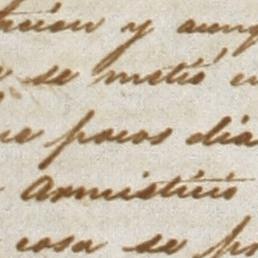 y aunq
se metió en
pocos dia
Armisticio
cosa se